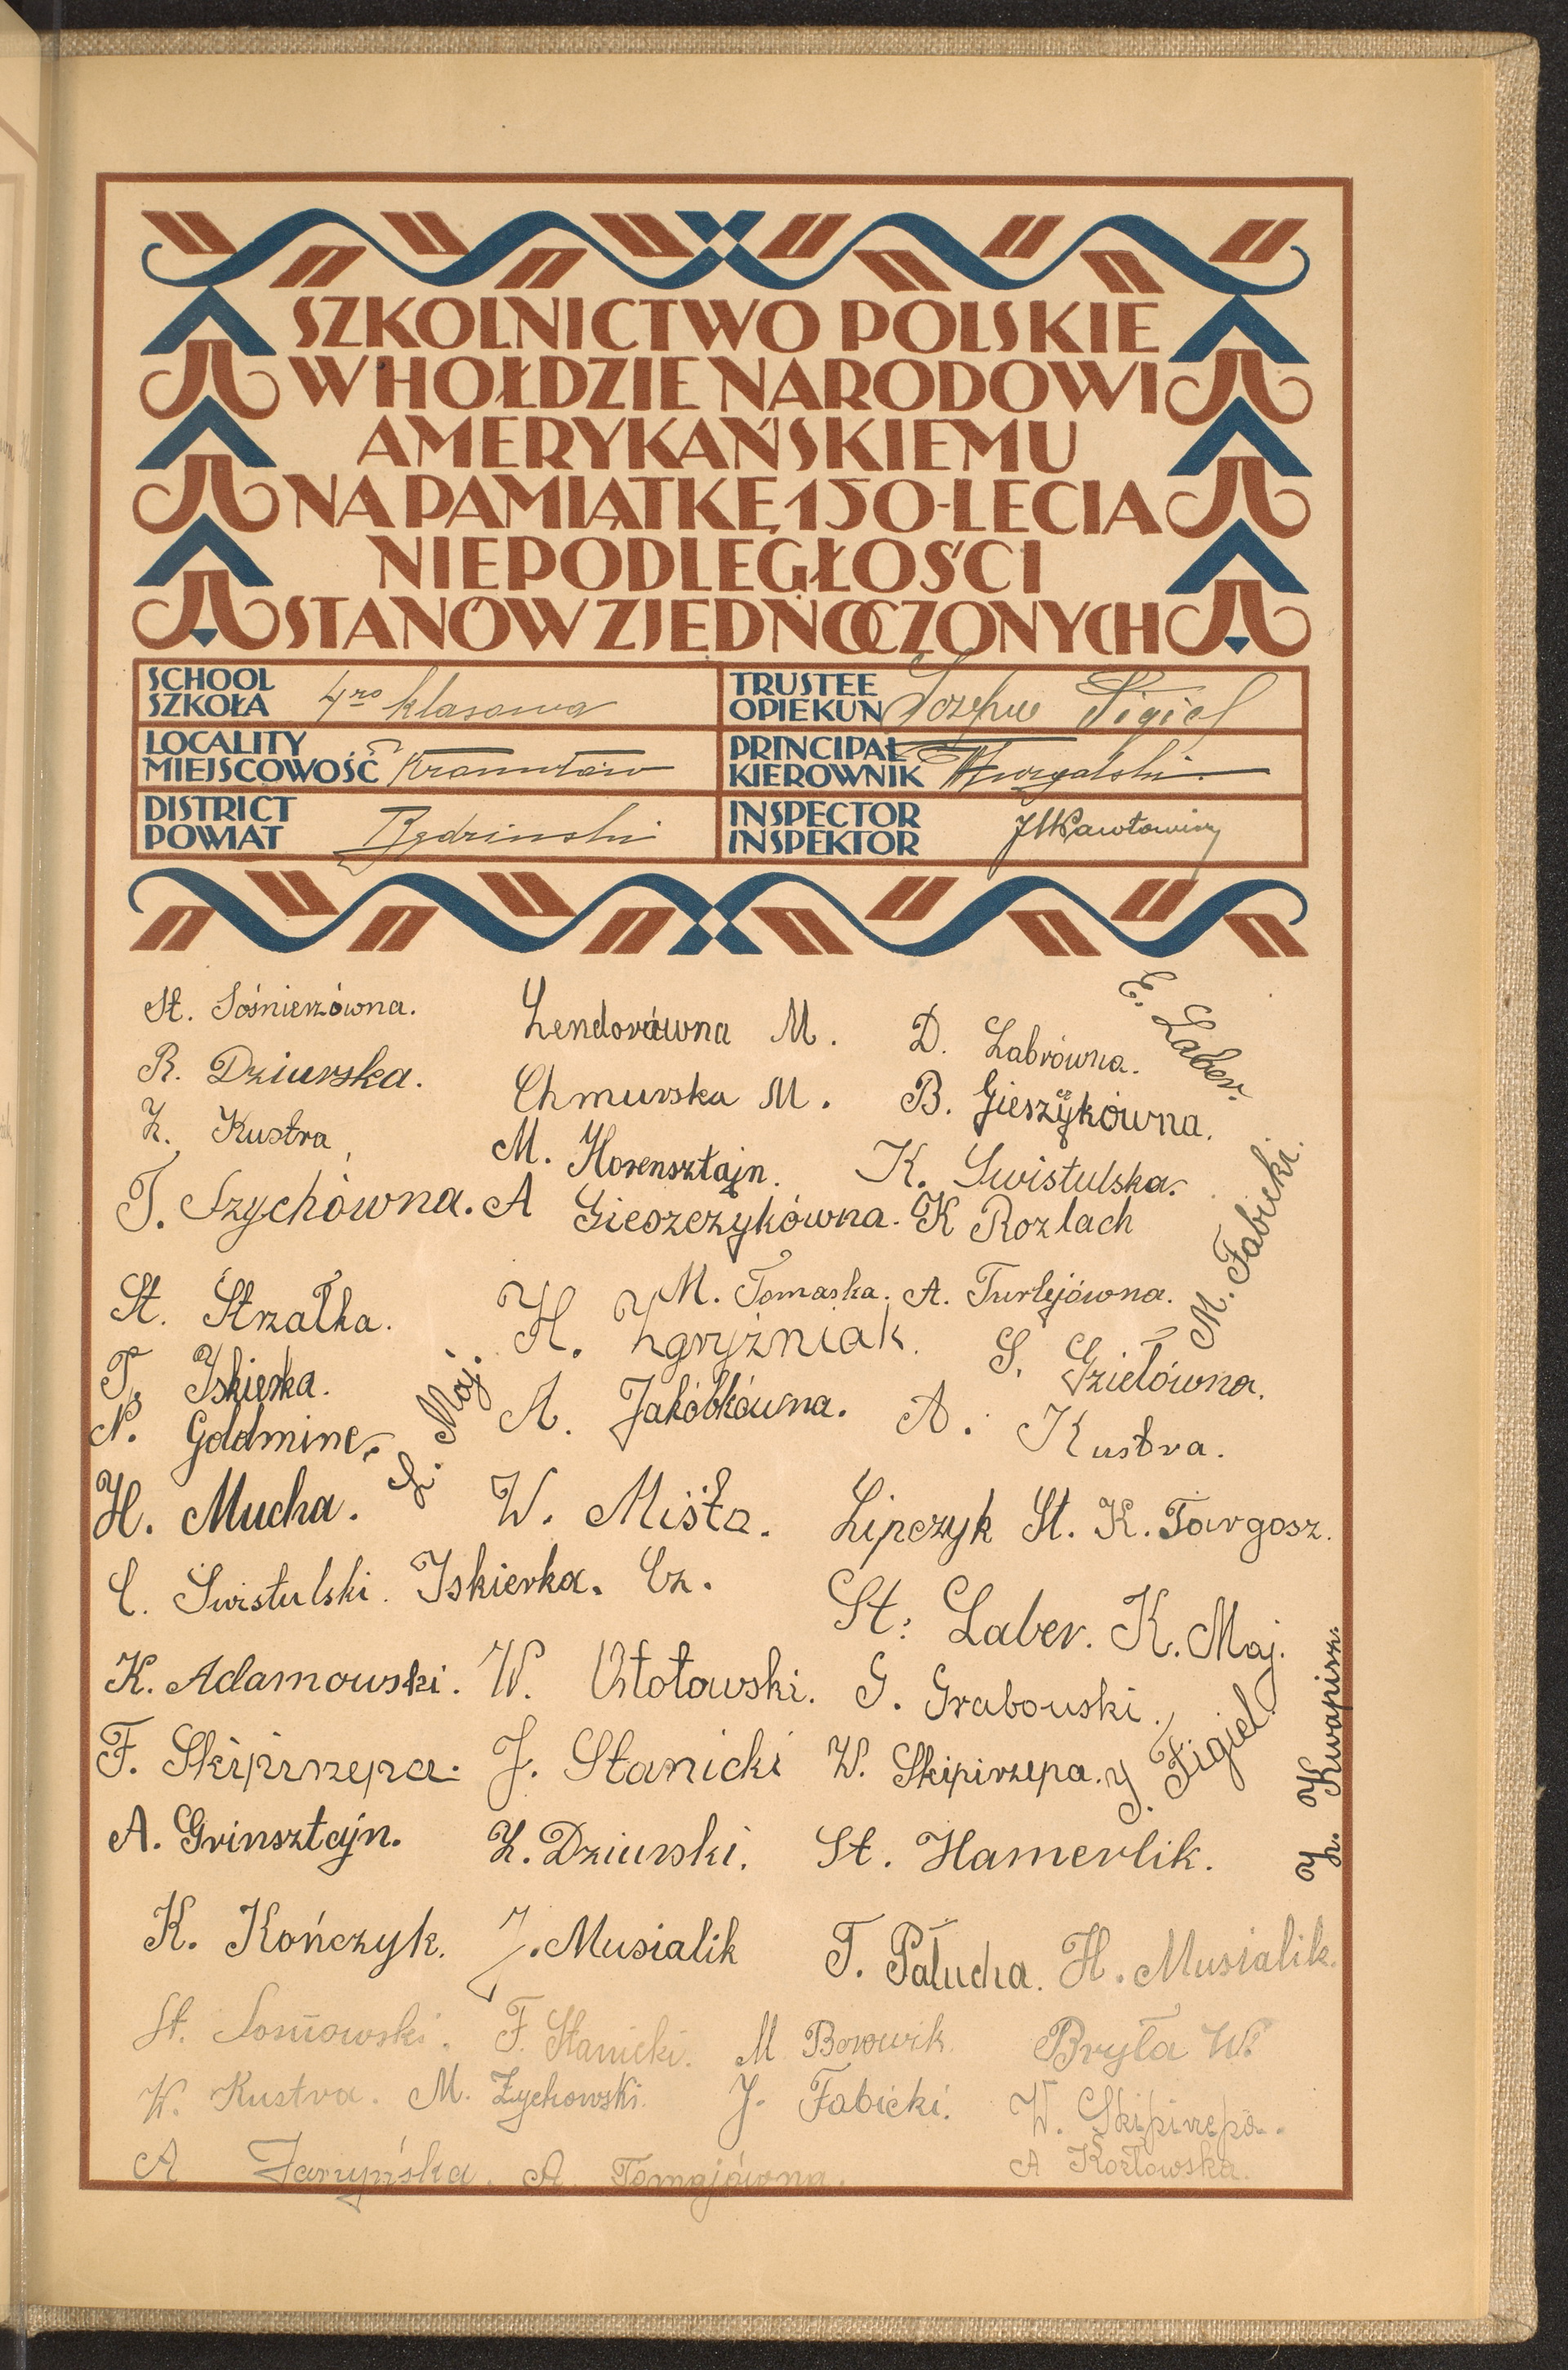 SZKOLNICTWO POLSKIE
W HOŁDZIE NARODOWI
AMERYKAŃSKIEMU
NA PAMIĄTKĘ 150-LECIA
NIEPODLEGŁOŚCI
STANÓW ZJEDNOCZONYCH
SCHOOL
SZKOŁA 4ro klasowa
TRUSTEE
OPIEKUN Figiel
LOCALITY
MIEJSCOWOŚĆ
PRINCIPAL
KIEROWNIK
DISTRICT
POWIAT Będzinski
INSPECTOR
INSPEKTOR
St. Sośnierzówna. Zendorówna M. D. Labrówna. E. Laber.
R. Dziurska. Chmurska M. B. Gieszczykówna.
Z. Kustra, M. Horensztajn. K. Swistulska.
T. Szychówna. A Gieszczykówna. K Rozlach
M. Fabicki.
M. Tomaska. A. Turlejówna.
St. Strzałka. H. Zgryźniak. S. Gziełówna.
T. Iskierka. L. Maj. A. Jakóbkówna. A. Kustra.
N. Goldminc.
H. Mucha. W. Miśta. Lipczyk St. K. Targosz.
C. Swistulski. Iskierka. Cz. St. Laber. K. Maj.
K. Adamowski. W. Otołowski. G. Grabowski.
F. Skipirzepa. J. Stanicki W. Skipirzepa. J. Figiel.
Z. Kwapisz.
A. Grinsztajn. Z. Dziurski. St. Hamerlik.
K. Kończyk. J. Musialik T. Pałucha. H. Musialik.
St. Sosnowski. F. Stanicki. M Borowik. Bryła W.
W. Kustra. M. Zychowski. J. Fabicki. W. Skipirzepa.
A Jaruyńska. A. Tomajówna. A Kozłowska.